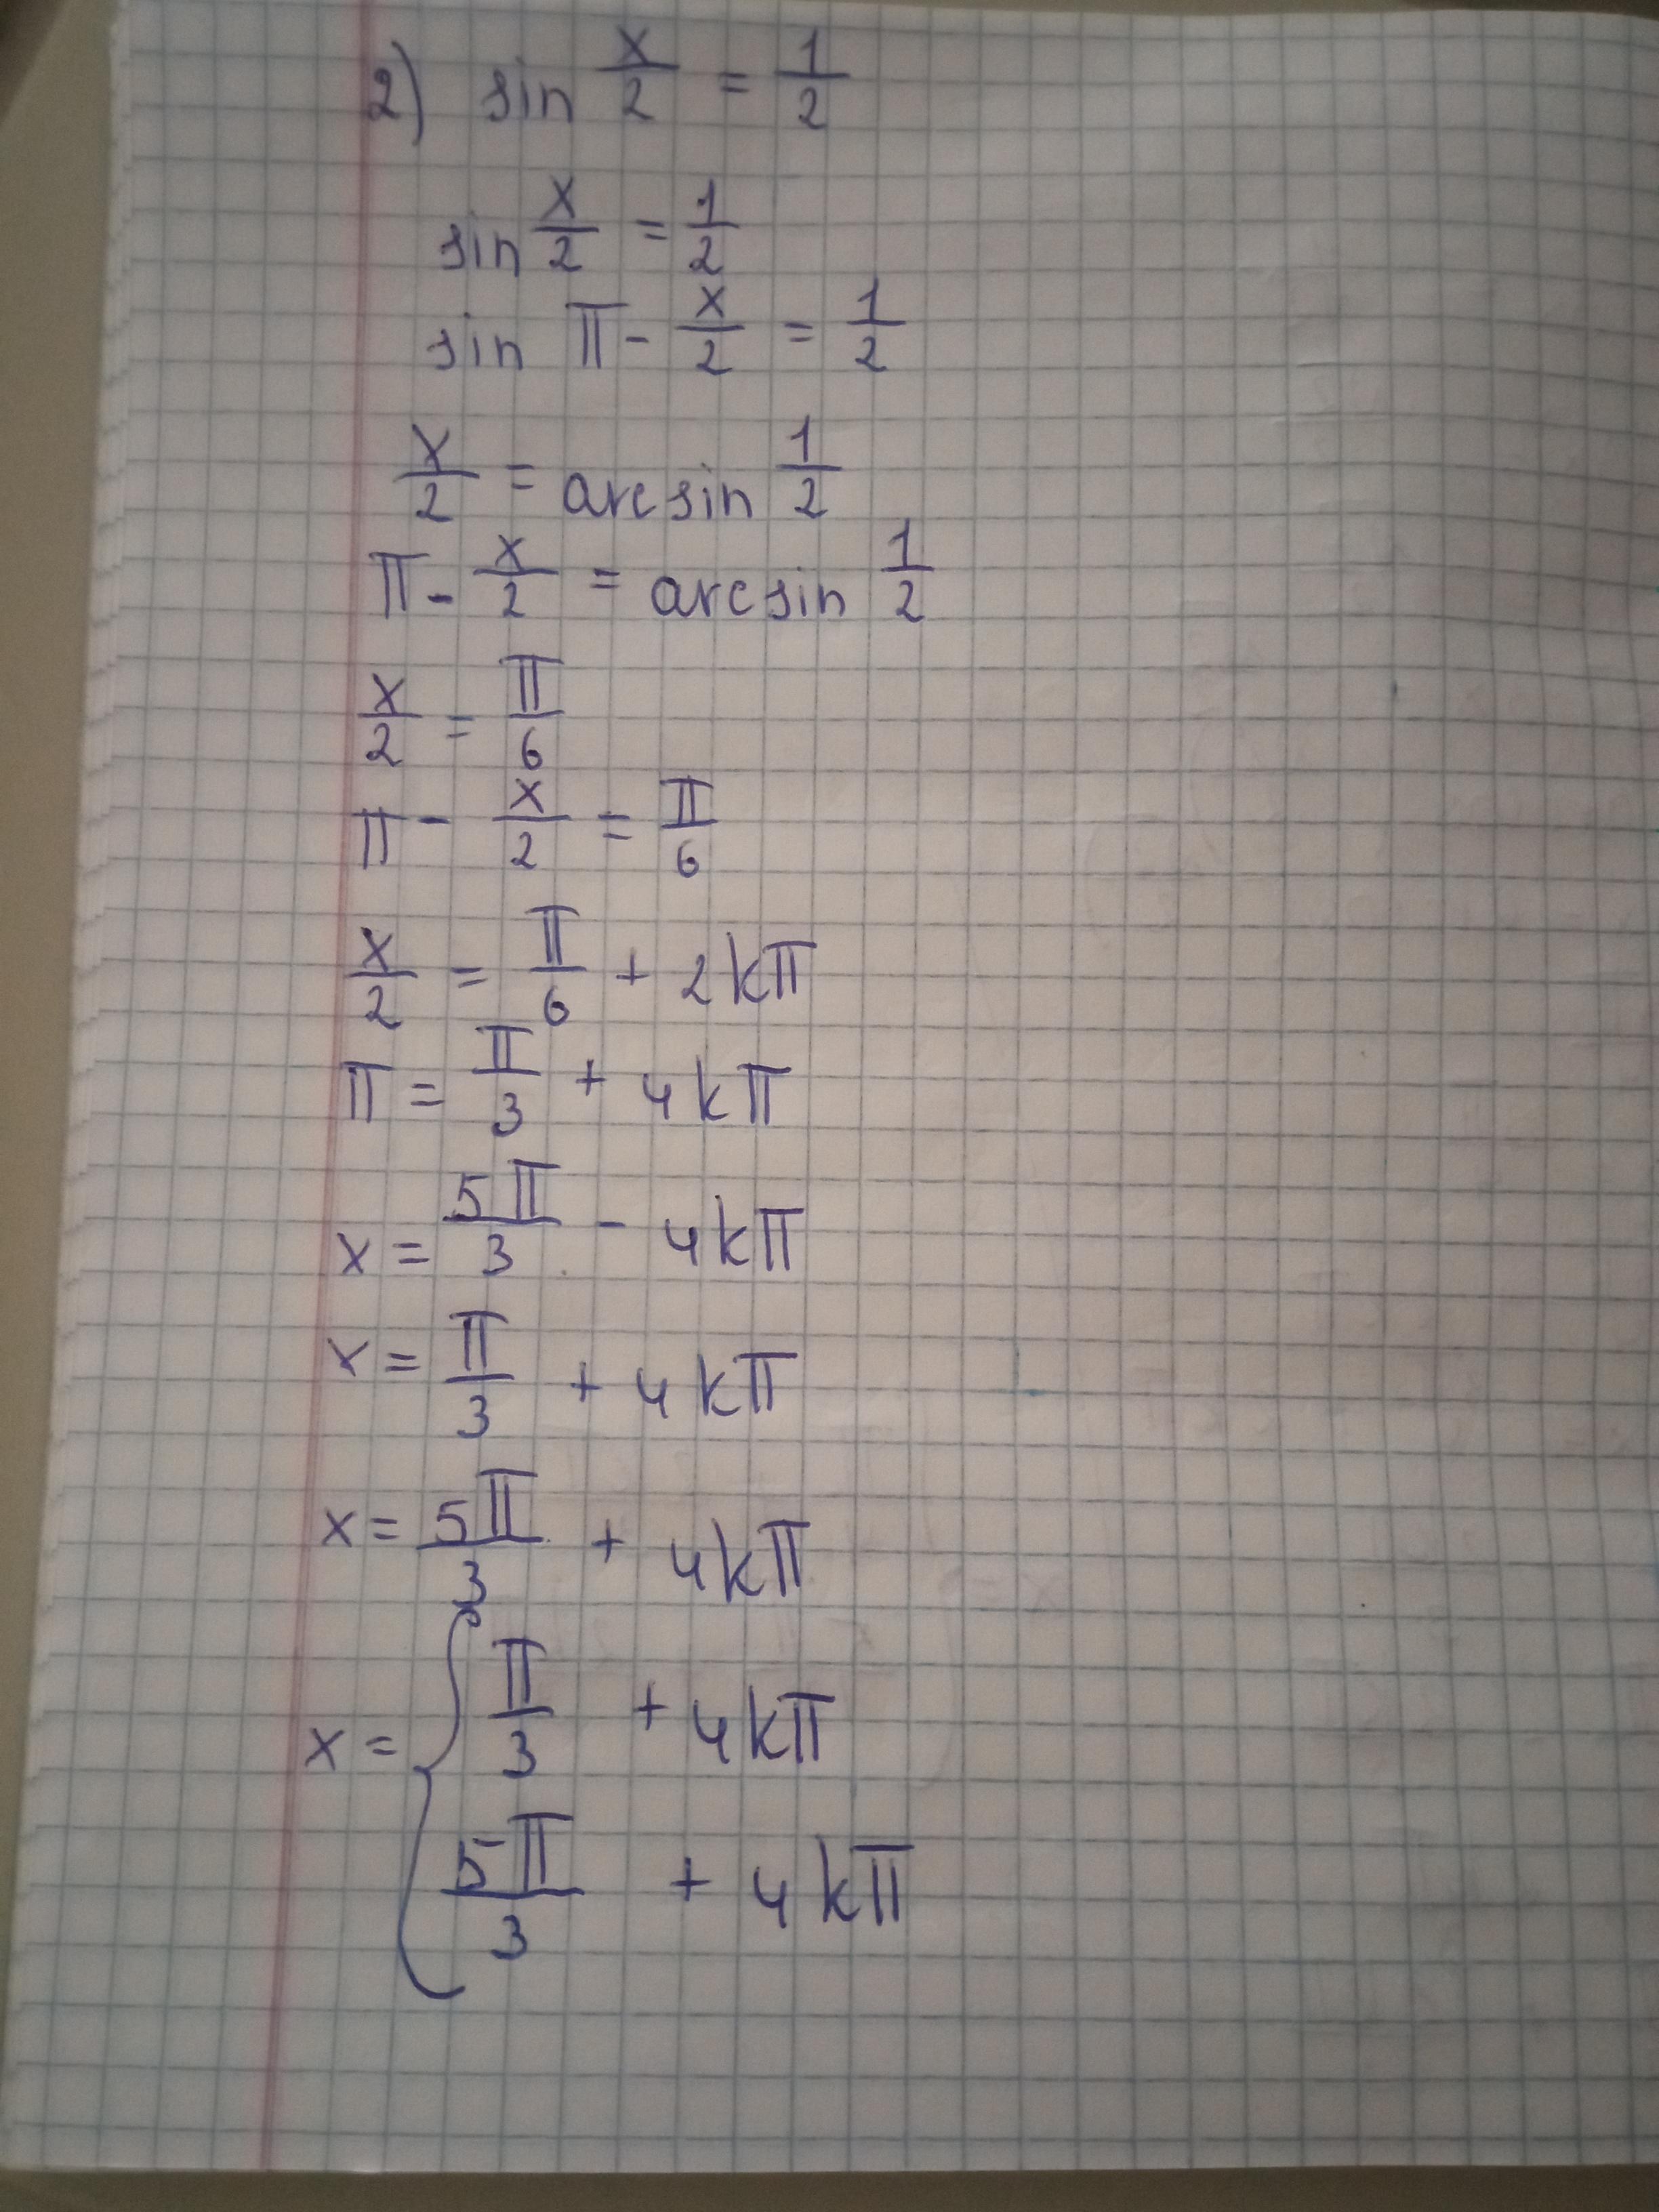 2) sin x/2 = 1/2
sin x/2 = 1/2
sin π - x/2 = 1/2
x/2 = arcsin 1/2
π - x/2 = arcsin 1/2
x/2 = π/6
π - x/2 = π/6
x/2 = π/6 + 2kπ
π = π/3 + 4kπ
x = 5π/3 - 4kπ
x = π/3 + 4kπ
x = 5π/3 + 4kπ
x = { π/3 + 4kπ
5π/3 + 4kπ